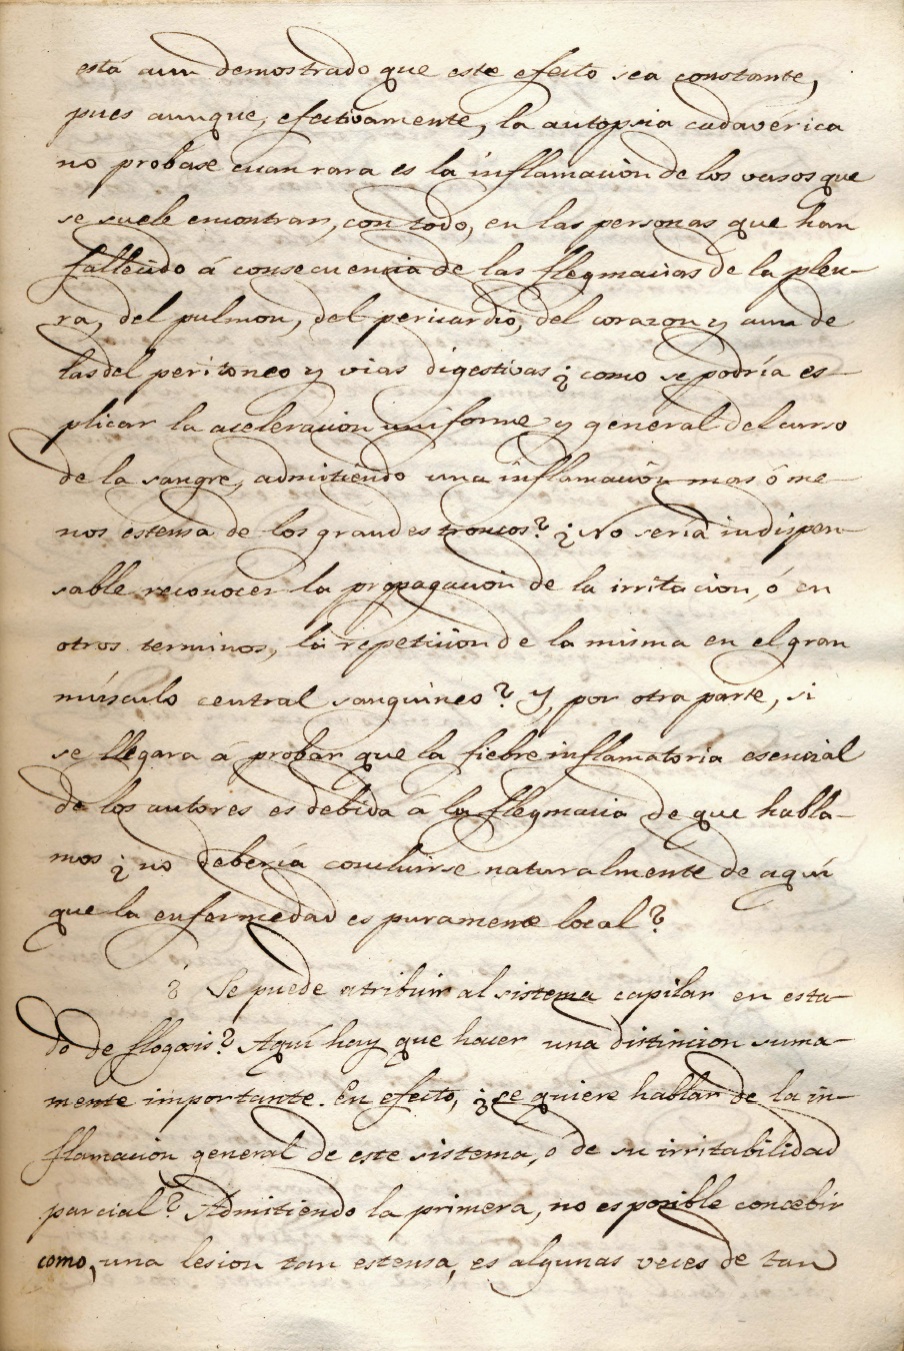 está aun demostrado que este efecto sea constante,
pues aunque, efectivamente, la autopsia cadavérica
no probase cuan rara es la inflamación de los vasos que
se suele encontrar, con todo, en las personas que han
fallecido á consecuencia de las flegmacias de la pleu-
ra, del pulmon, del pericardio, del corazon y aun de
las del peritoneo y vias digestivas ¿como se podría es-
plicar la aceleracion uniforme y general del curso
de la sangre, admitiendo una inflamación mas ó me-
nos estensa de los grandes troncos? ¿No sería indispen-
sable reconocer la propagación de la irritacion, ó en
otros terminos, la repetición de la misma en el gran
músculo central sanguineo? Y, por otra parte, si
se llegara á probar que la fiebre inflamatoria esencial
de los autores es debida á la flegmacia de que habla-
mos ¿no debería concluirse naturalmente de aquí
que la enfermedad es puramente local?
¿Se puede atribuir al sistema capilar en esta-
do de flogosis? Aquí hay que hacer una distincion suma-
mente importante. En efecto, ¿se quiere hablar de la in-
flamación general de este sistema, ó de su irritabilidad
parcial? Admitiendo la primera, no es posible concebir
como, una lesion tan estensa, es algunas veces de tan